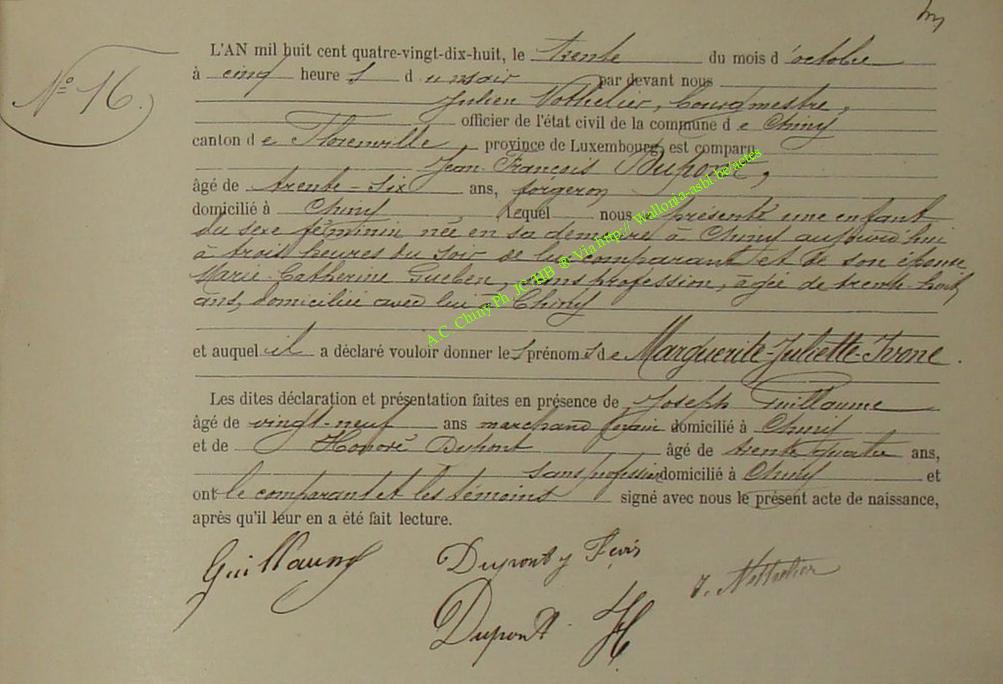 Nº 16.
L'AN mil huit cent quatre-vingt-dix-huit, le trente du mois d'octobre
à cinq heures du soir par devant nous
Julien Nothelier, bourgmestre,
officier de l'état civil de la commune de Chiny
canton de Florenville, province de Luxembourg, est comparu
Jean-François Dupont,
âgé de trente-six ans, forgeron,
domicilié à Chiny lequel nous a présenté une enfant
du sexe féminin née en sa demeure à Chiny aujourd'hui
à trois heures du soir de lui comparant et de son épouse,
Marie-Catherine Gueben, sans profession, âgée de trente-huit
ans, domiciliée avec lui à Chiny
et auquel il a déclaré vouloir donner les prénoms de Marguerite-Juliette-Ivone.
Les dites déclaration et présentation faites en présence de Joseph Guillaume
âgé de vingt-neuf ans marchand domicilié à Chiny
et de Honoré Dupont âgé de trente quatre ans,
sans profession domicilié à Chiny et
ont le comparant et les témoins signé avec nous le présent acte de naissance,
après qu'il leur en a été fait lecture.
Guillaume
Dupont J
Dupont H
J. Nothelier
A.C. Chiny Ph. JC HB ® Via http// Wallonia-asbl.be/actes